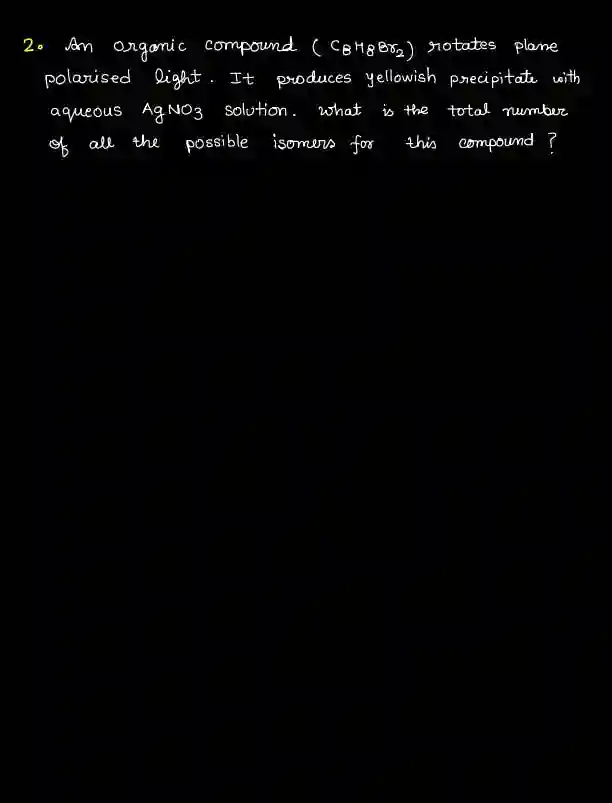 2. An organic compound ( C8H8Br2 ) rotates plane
polarised light. It produces yellowish precipitate with
aqueous AgNO3 solution. what is the total number
of all the possible isomers for this compound ?